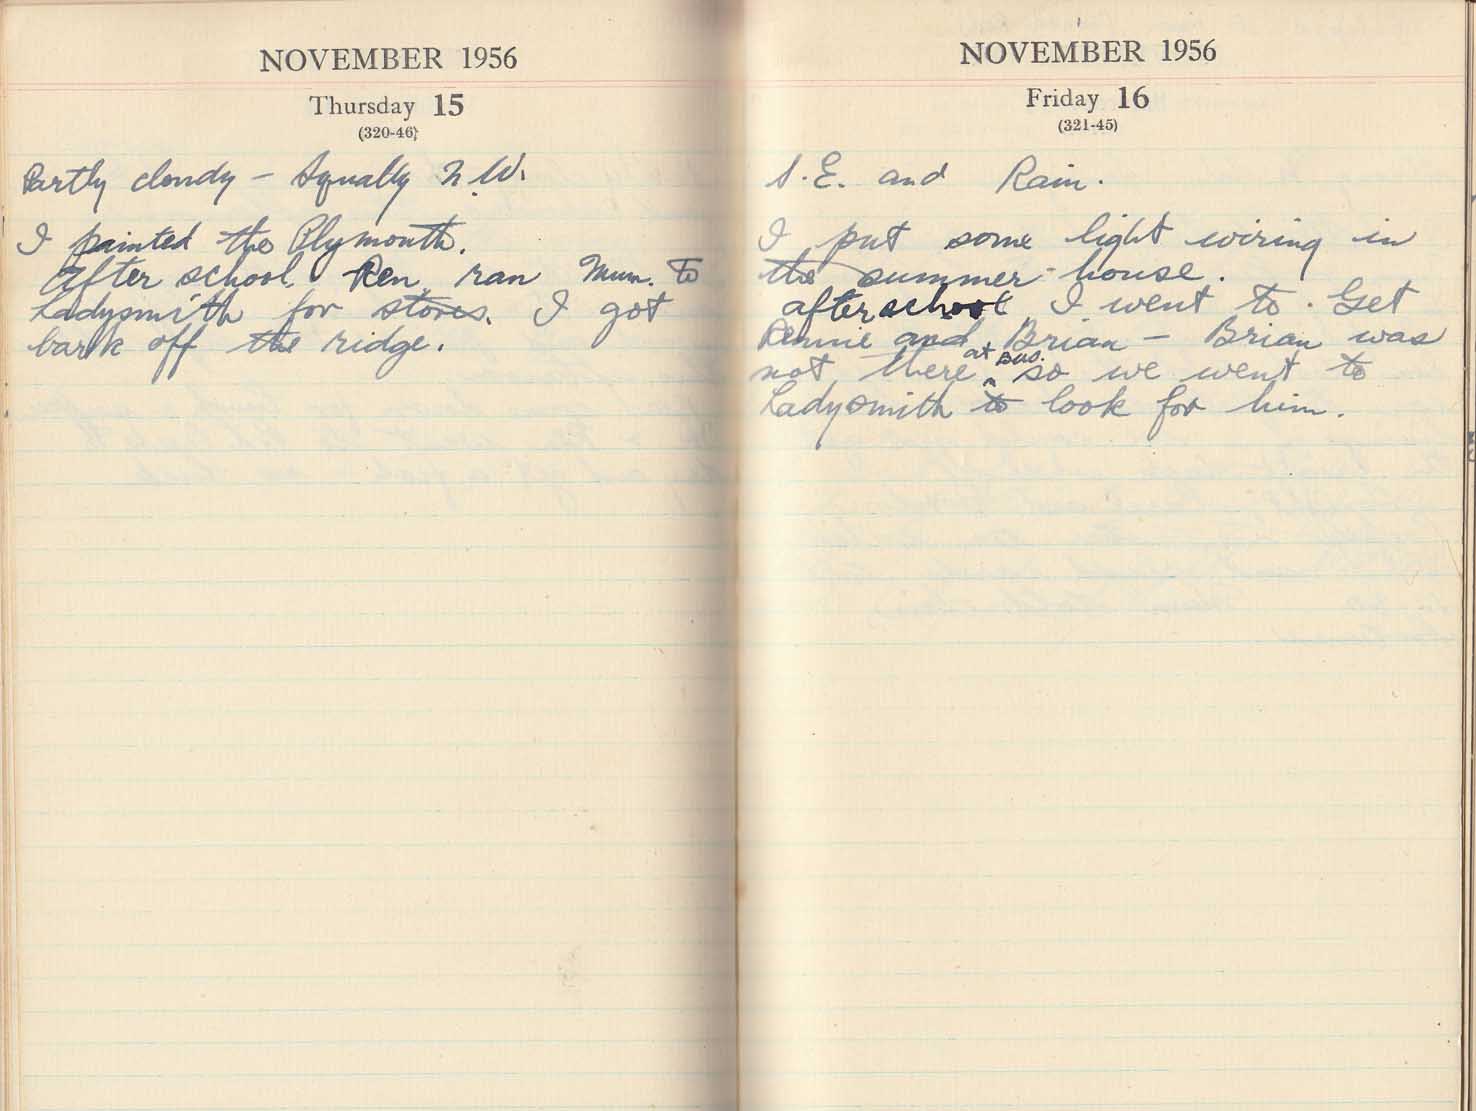 NOVEMBER 1956
Thursday 15
(320-46)
Partly cloudy – Squally N.W.
I painted the Plymouth.
After school Ren ran Mum. To
Ladysmith for stores. I got
bark off the ridge.
NOVEMBER 1956
Friday 16
(321-45)
S.E. and Rain.
I put some light wiring in
the summer-house.
after school I went to. Get
Rennie and Brian – Brian was
not there at Bus. so we went to
Ladysmith to look for him.